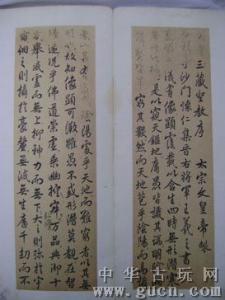 三藏聖教序 太宗文皇帝製
寺沙門懷仁集晉右將軍王羲之書
儀有像顯覆載以含生四時無形潛
是以窺天鑑地庸愚皆識其端明
窮其數然而天地苞乎陰陽而易
陽乎天地而難窮者以其無
故知像顯可徵雖愚不惑形潛莫覩在智
迷況乎佛道崇虛乘幽控寂弘濟萬品典御十
舉威靈而無上抑神力而無下大之則彌於宇
宙細之則攝於豪釐無滅無生歷千劫而不
中华古玩网
www.gucn.com